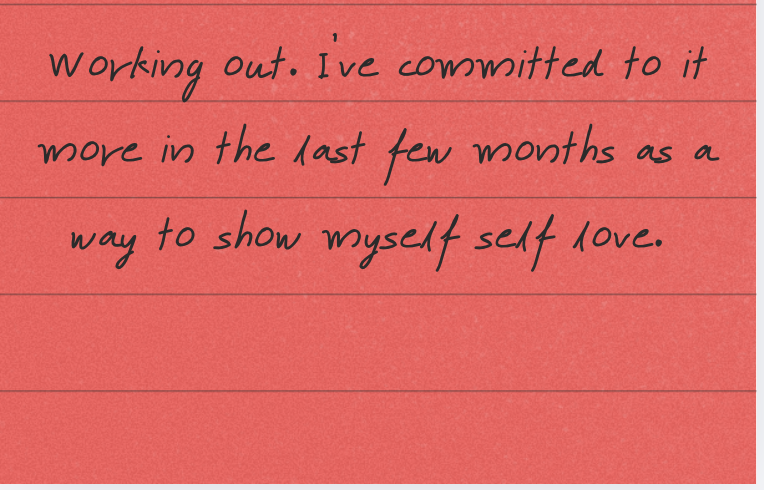 Working out. I've committed to it
more in the last few months as a
way to show myself self love.